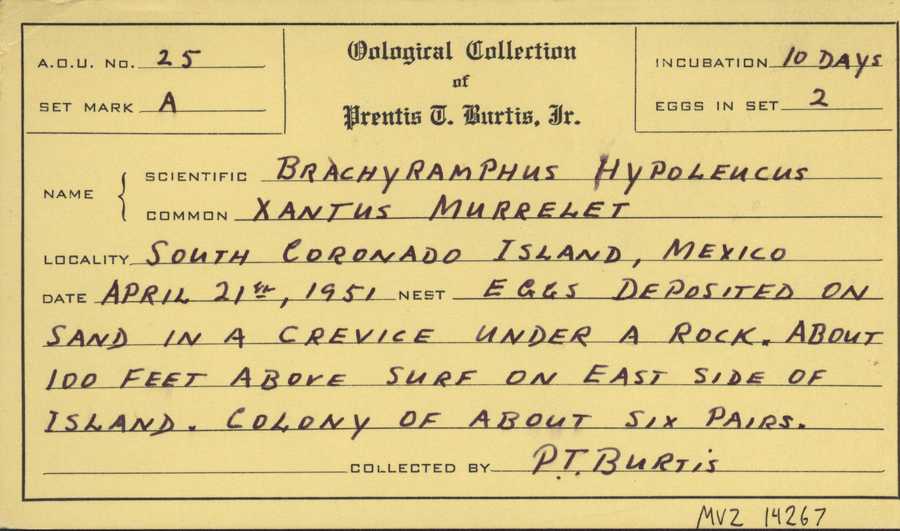 A.O.U. No. 25
Oological Collection
of
Prentis T. Burtis, Jr.
INCUBATION 10 DAYS
SET MARK A
EGGS IN SET 2
NAME { SCIENTIFIC BRACHYRAMPHUS HYPOLEUCUS
COMMON XANTUS MURRELET
LOCALITY SOUTH CORONADO ISLAND, MEXICO
DATE APRIL 21st, 1951 NEST EGGS DEPOSITED ON
SAND IN A CREVICE UNDER A ROCK. ABOUT
100 FEET ABOVE SURF ON EAST SIDE OF
ISLAND. COLONY OF ABOUT SIX PAIRS.
COLLECTED BY P.T. BURTIS
MVZ 14267